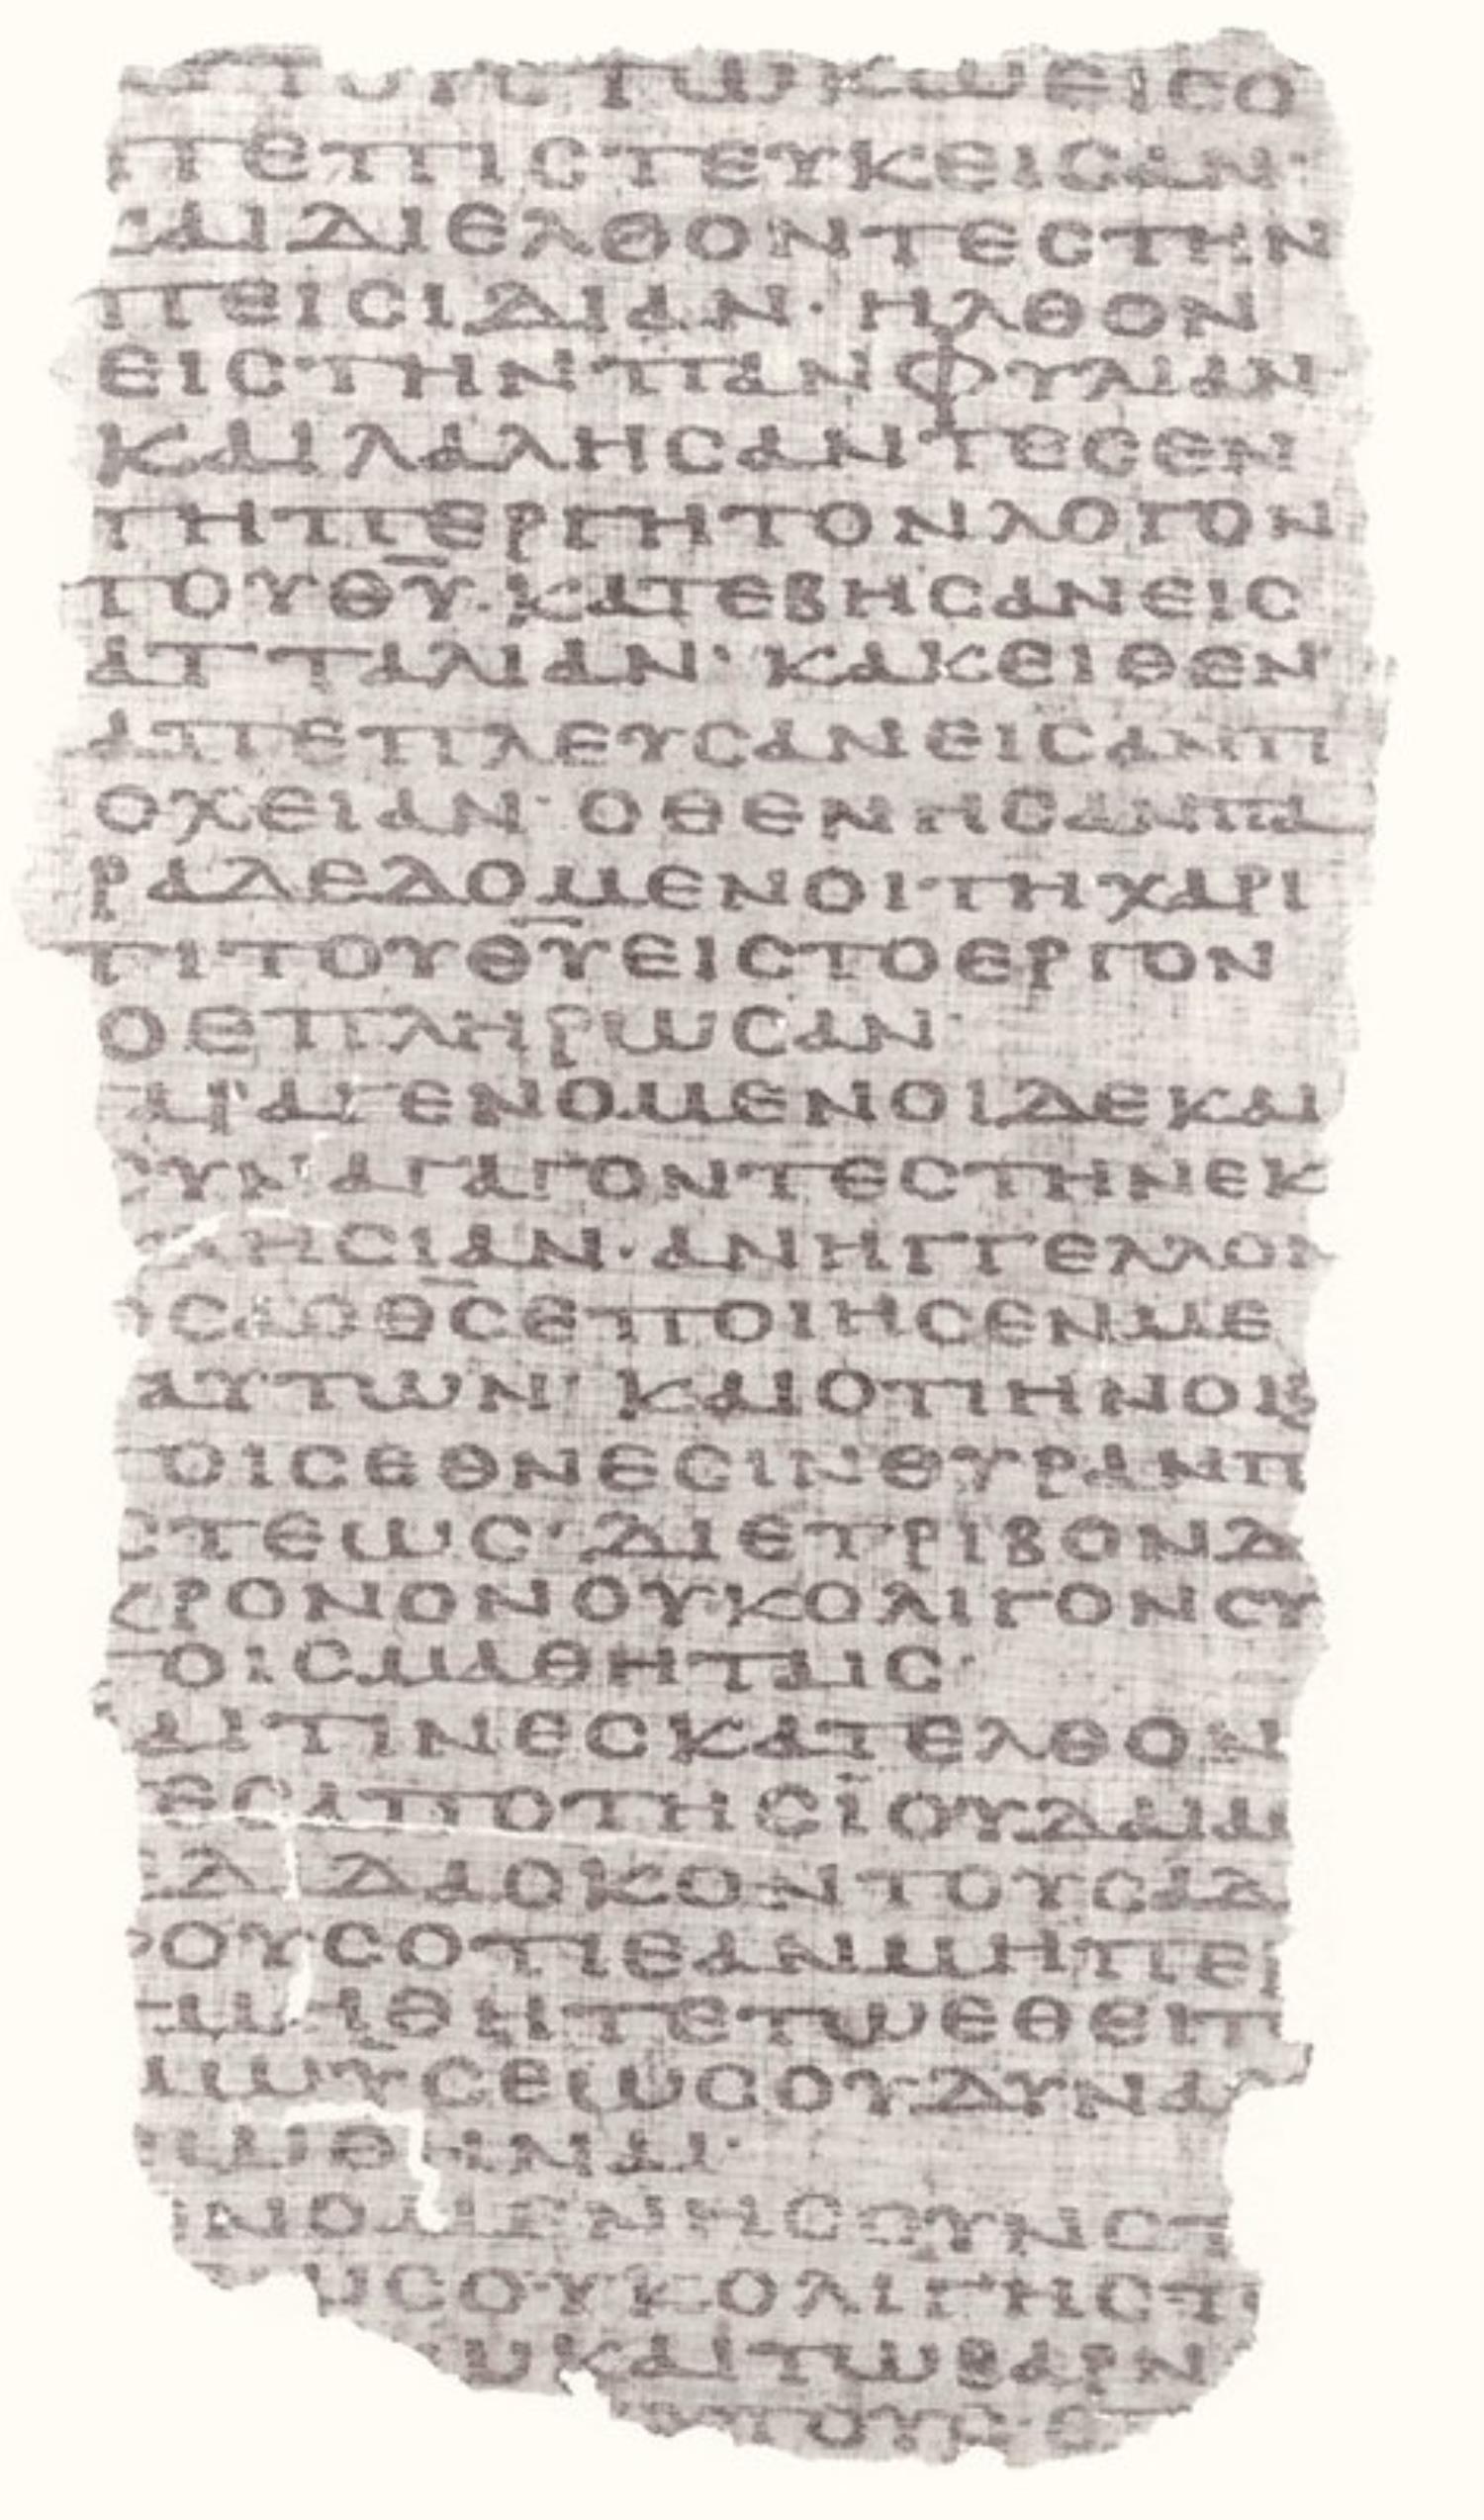 ΤΟΥCΤΩΚΩΕΙCΟ
ΠΕΠΙCΤΕΥΚΕΙCΑΝ·
ΚΑΙΔΙΕΛΘΟΝΤΕCΤΗΝ
ΠΕΙCΙΔΙΑΝ· ΗΛΘΟΝ
ΕΙCΤΗΝΠΑΝΦΥΛΙΑΝ
ΚΑΙΛΑΛΗCΑΝΤΕCΕΝ
ΤΗΠΕΡΓΗΤΟΝΛΟΓΟΝ
ΤΟΥΘ̅Υ̅·ΚΑΤΕΒΗCΑΝΕΙC
ΑΤΤΑΛΙΑΝ· ΚΑΚΕΙΘΕΝ
ΑΠΕΠΛΕΥCΑΝΕΙCΑΝΤΙ
ΟΧΕΙΑΝ· ΟΘΕΝΗCΑΝΠΑ
ΡΑΔΕΔΟΜΕΝΟΙΤΗΧΑΡΙ
ΤΙΤΟΥΘ̅Υ̅ΕΙCΤΟΕΡΓΟΝ
ΟΕΠΛΗΡΩCΑΝ·
ΑΡΑΓΕΝΟΜΕΝΟΙΔΕΚΑΙ
CΥΝΑΓΑΓΟΝΤΕCΤΗΝΕΚ
ΛΗCΙΑΝ·ΑΝΗΓΓΕΛΛΟΝ
ΟCΑΟΘ̅C̅ΕΠΟΙΗCΕΝΜΕ
ΑΥΤΩΝ· ΚΑΙΟΤΙΗΝΟΙΞ
ΤΟΙCΕΘΝΕCΙΝΘΥΡΑΝΠΙ
CΤΕΩC· ΔΙΕΤΡΙΒΟΝΔ
ΧΡΟΝΟΝΟΥΚΟΛΙΓΟΝCΥ
ΤΟΙCΜΑΘΗΤΑΙC·
ΑΙΤΙΝΕCΚΑΤΕΛΘΟΝ
ΕCΑΠΟΤΗCΪΟΥΔΑΙΑ
ΕΔΙΔΑCΚΟΝΤΟΥCΑΔ
ΦΟΥCΟΤΙΕΑΝΜΗΠΕΡ
ΤΜΗΘΗΤΕΤΩΕΘΕΙΤ
ΜΩΫCΕΩCΟΥΔΥΝΑC
CΩΘΗΝΑΙ·
ΕΝΟΜΕΝΗCΟΥΝCΤ
ΩCΟΥΚΟΛΙΓΗCΤ
ΥΚΑΙΤΩΒΑΡΝ
ΥΤΟΥC·Ε